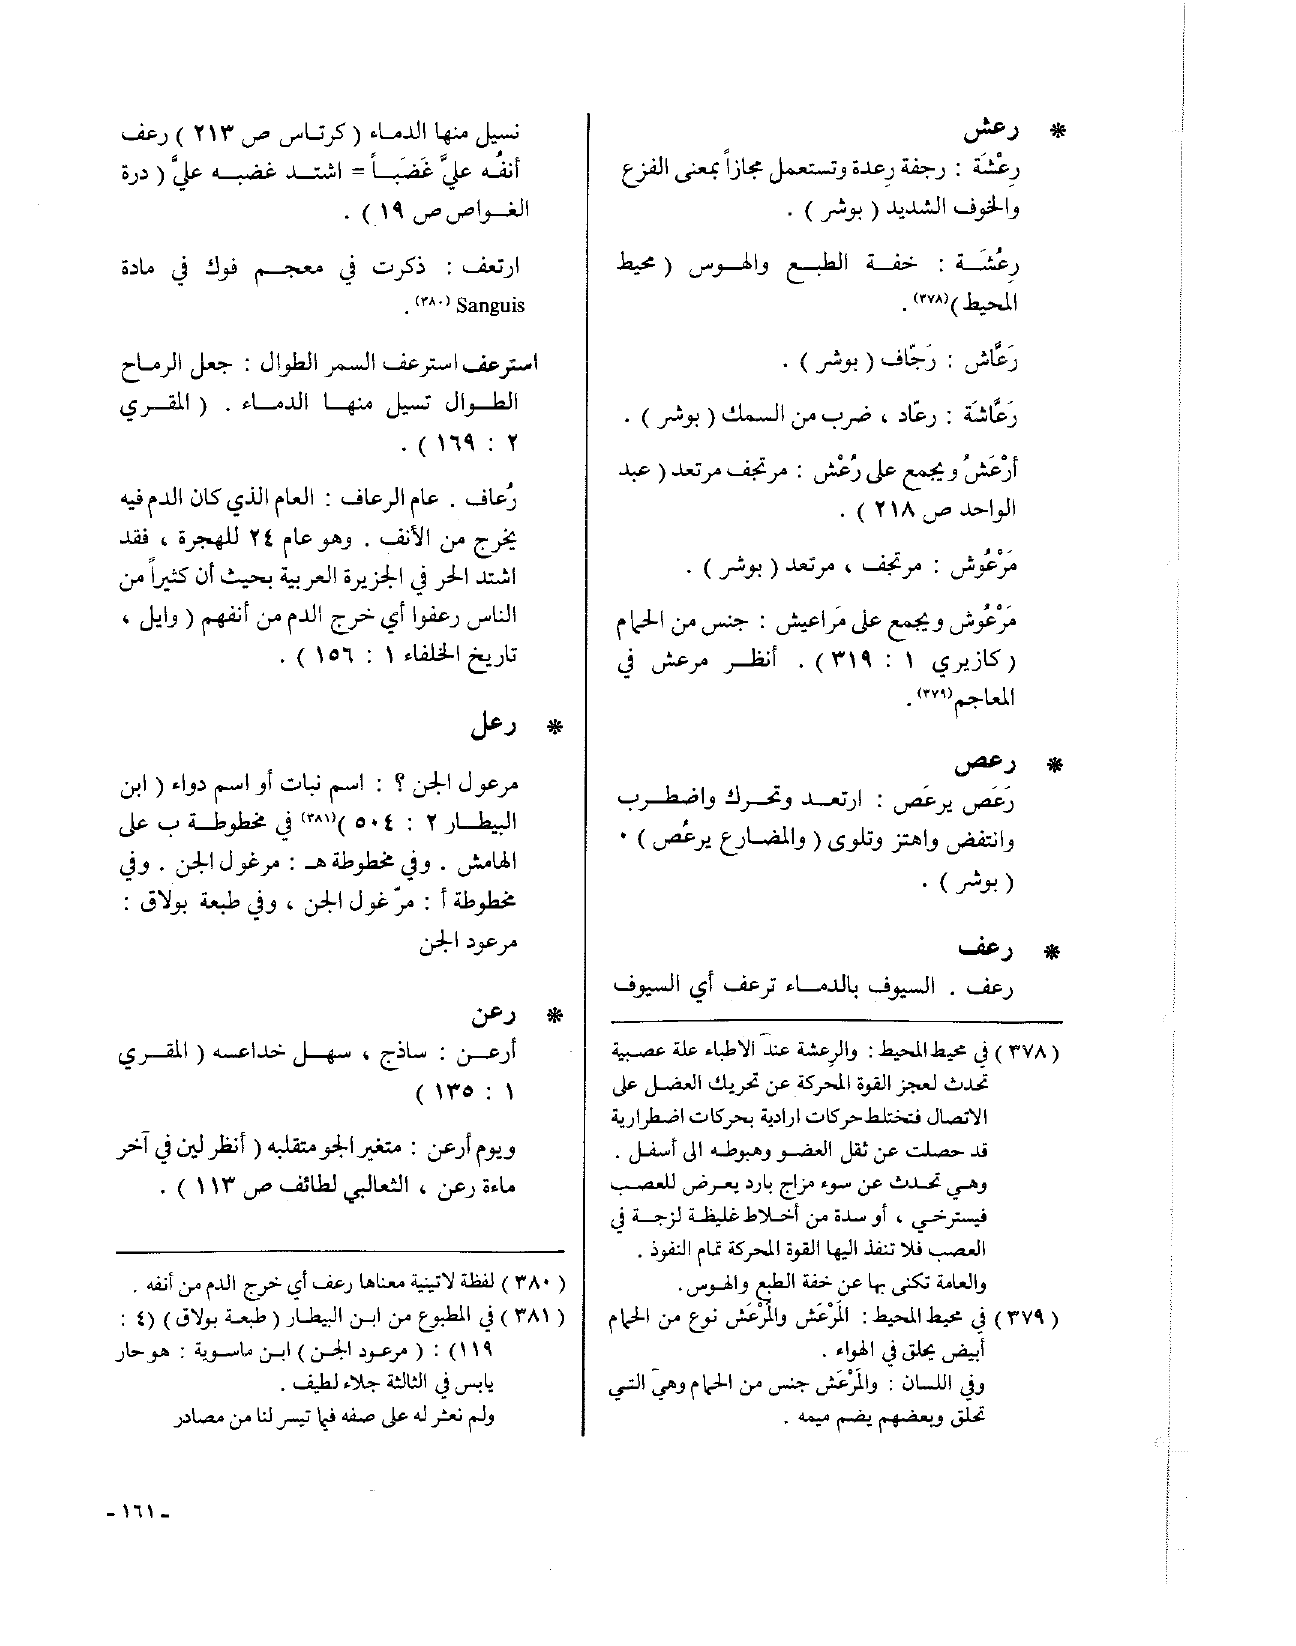 * رعش
رِعْشَة : رجفة رعدة وتستعمل مجازاً بمعنى الفزع
والخوف الشديد ( بوشر ) .
رعْشَـة : خفـة الطبـع والهـوس ( محيط
المحيط )(٣٧٨) .
رَعَّاش : رَجّاف ( بوشر ) .
رَعَّاشَة : رعّاد ، ضرب من السمك ( بوشر ) .
أرْعَشُ ويجمع على رُعْش : مرتجف مرتعد ( عبد
الواحد ص ٢١٨ ) .
مَرْعُوش : مرتجف ، مرتعد ( بوشر ) .
مَرْعُوش ويجمع على مَراعيش : جنس من الحمام
( كازيري ١ : ٣١٩ ) . أنظـر مرعش في
المعاجم(٣٧٩) .
* رعص
رَعَص يرعَص : ارتعـد وتحـرك واضطـرب
وانتفض واهتز وتلوى ( والمضارع يرعُص ) .
( بوشر ) .
* رعف
رعف . السيوف بالدمـاء ترعف أي السيوف
( ٣٧٨ ) في محيط المحيط : والرِعشة عند الاطباء علة عصبية
تحدث لعجز القوة المحركة عن تحريك العضل على
الاتصال فتختلط حركات ارادية بحركات اضطرارية
قد حصلت عن ثقل العضو وهبوطه الى أسفل .
وهي تحدث عن سوء مزاج بارد يعرض للعصب
فيسترخي ، أو سدة من أخلاط غليظة لزجـة في
العصب فلا تنفذ اليها القوة المحركة تمام النفوذ .
والعامة تكنى بها عن خفة الطبع والهوس .
( ٣٧٩ ) في محيط المحيط : المَرْعَش والمُرْعَش نوع من الحمام
أبيض يحلق في الهواء .
وفي اللسان : والمَرْعَش جنس من الحمام وهي التي
تحلق وبعضهم يضم ميمه .
تسيل منها الدمـاء ( كرتـاس ص ٢١٣ ) رعف
أنفُه عليَّ غَضَبـاً = اشتـد غضبـه عليَّ ( درة
الغـواص ص ١٩ ) .
ارتعف : ذكرت في معجـم فوك في مادة
Sanguis (٣٨٠) .
استرعف استرعف السمر الطوال : جعل الرمـاح
الطـوال تسيل منهـا الدمـاء . ( المقـري
٢ : ١٦٩ ) .
رُعاف . عام الرعاف : العام الذي كان الدم فيه
يخرج من الأنف . وهو عام ٢٤ للهجرة ، فقد
اشتد الحر في الجزيرة العربية بحيث أن كثيراً من
الناس رعفوا أي خرج الدم من أنفهم ( وايل ،
تاريخ الخلفاء ١ : ١٥٦ ) .
* رعل
مرعول الجن ؟ : اسم نبات أو اسم دواء ( ابن
البيطـار ٢ : ٥٠٤ )(٣٨١) في مخطوطـة ب على
الهامش . وفي مخطوطة هـ : مرغول الجن . وفي
مخطوطة أ : مرّغول الجن ، وفي طبعة بولاق :
مرعود الجن
* رعن
أرعـن : ساذج ، سهـل خداعـه ( المقـري
١ : ١٣٥ )
ويوم أرعن : متغير الجو متقلبه ( أنظر لين في آخر
ماءة رعن ، الثعالبي لطائف ص ١١٣ ) .
( ٣٨٠ ) لفظة لاتينية معناها رعف أي خرج الدم من أنفه .
( ٣٨١ ) في المطبوع من ابـن البيطـار ( طبعـة بولاق ) (٤ :
١١٩) : ( مرعود الجـن ) ابـن ماسـوية : هو حار
يابس في الثالثة جلاء لطيف .
ولم نعثر له على صفه فيما تيسر لنا من مصادر
ـ ١٦١ ـ